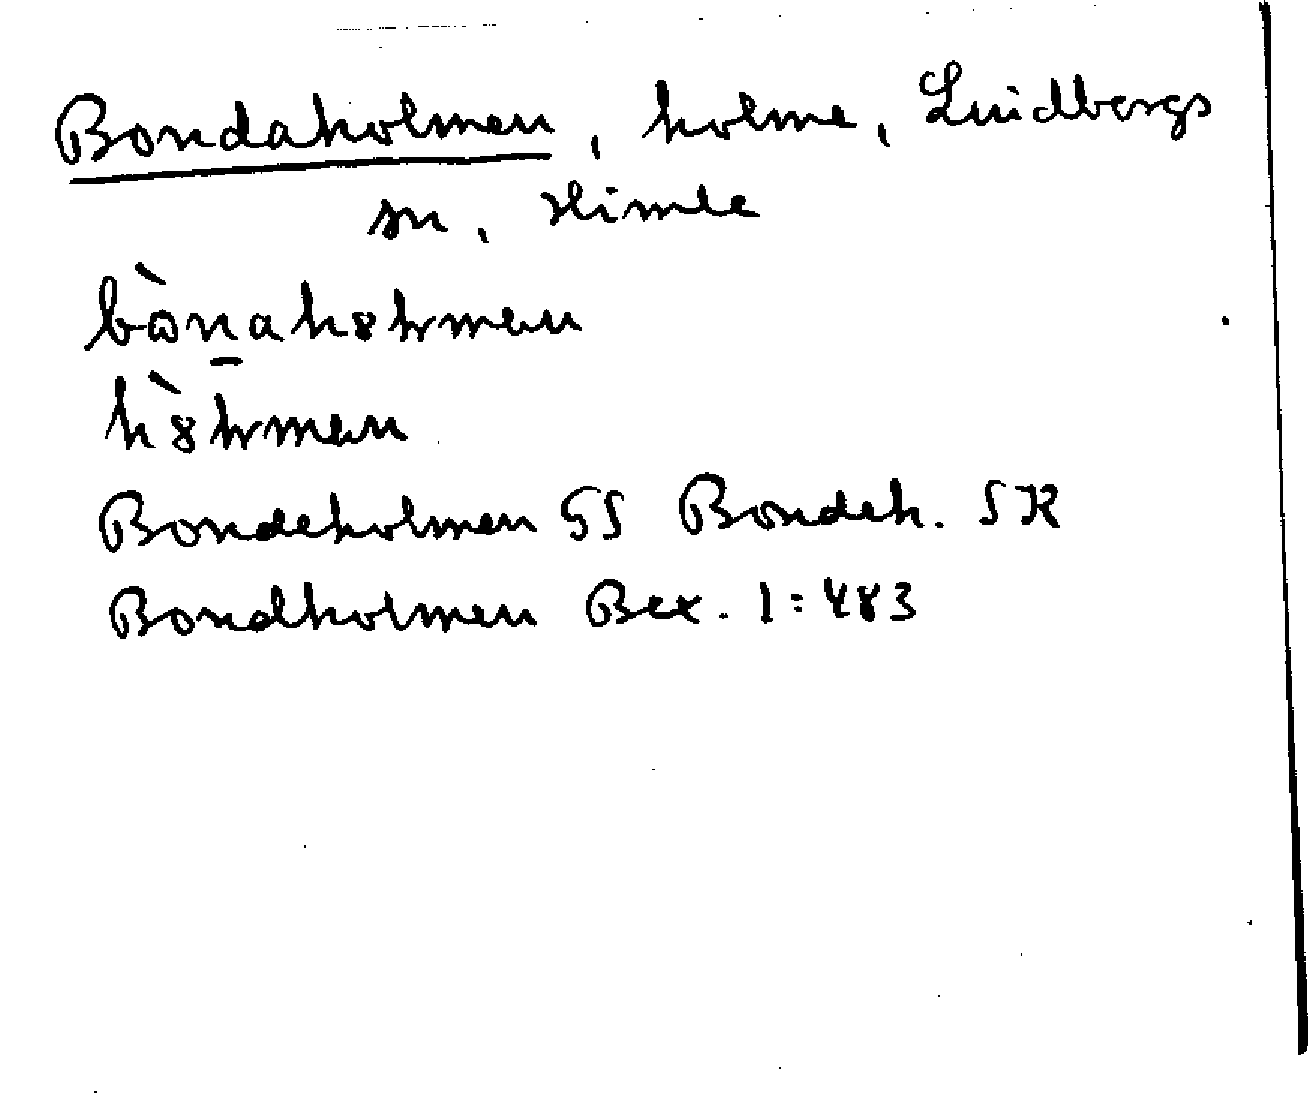 Bondaholmen, holme, Lindbergs
sn, Himle
Bondeholmen GS Bondeh. SK
Bondholmen Bex. 1:483